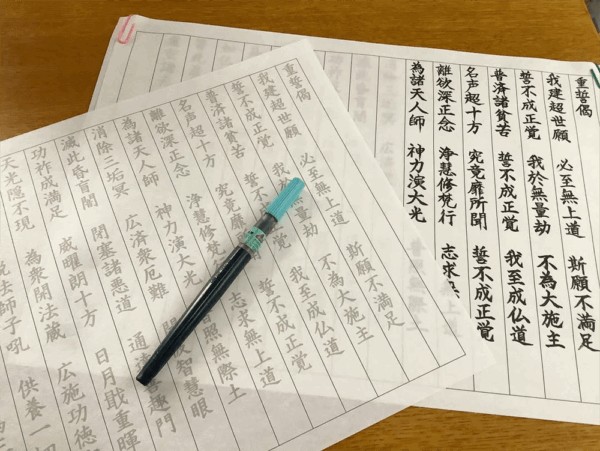 重誓偈
我建超世願 必至無上道 斯願不満足
誓不成正覚 我於無量劫 不為大施主
普済諸貧苦 誓不成正覚 我至成仏道
名声超十方 究竟靡所聞 誓不成正覚
離欲深正念 浄慧修梵行 志求
為諸天人師 神力演大光
重誓偈
我建超世願 必至無上道 斯願不満足
誓不成正覚 我 無量劫 不為大施主
普済諸貧苦 誓不 覚 我至成仏道
名声超十方 究竟 誓不成正覚
離欲深正念 浄慧修梵 志求無上道
為諸天人師 神力演大光 照無際土
消除三垢冥 広済衆厄難 彼智慧眼
滅此昏盲闇 閉塞諸悪道 通 趣門
功祚成満足 威曜朗十方 日月戢重暉
天光隠不現 為衆開法蔵 広施功徳
説法師子吼 供養一切